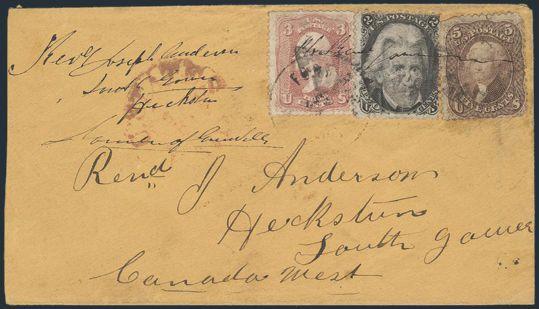 Revd Joseph Anderson
South Gower
Heckston
3 U.S. POSTAGE 3
U S
2 U.S. POSTAGE 2
TWO CENTS
5 U.S. POSTAGE 5
U FIVE CENTS S
Revd J Anderson
Heckstun
South Gower
Canada West